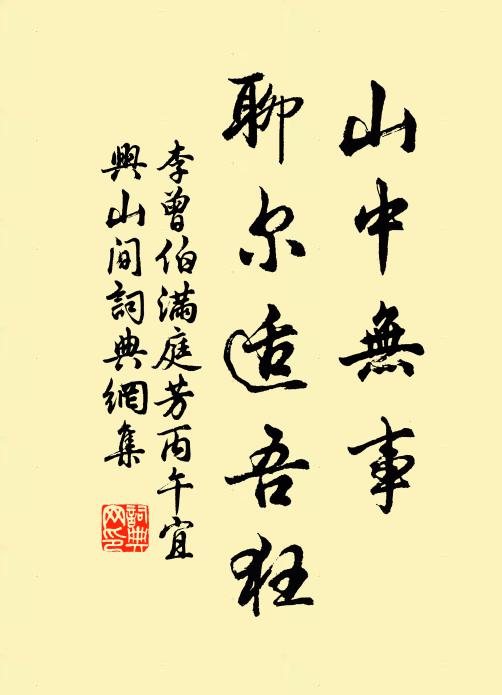 山中無事
聊尔适吾狂
李曾伯满庭芳丙午宜
興山间詞典網集
詞典网印